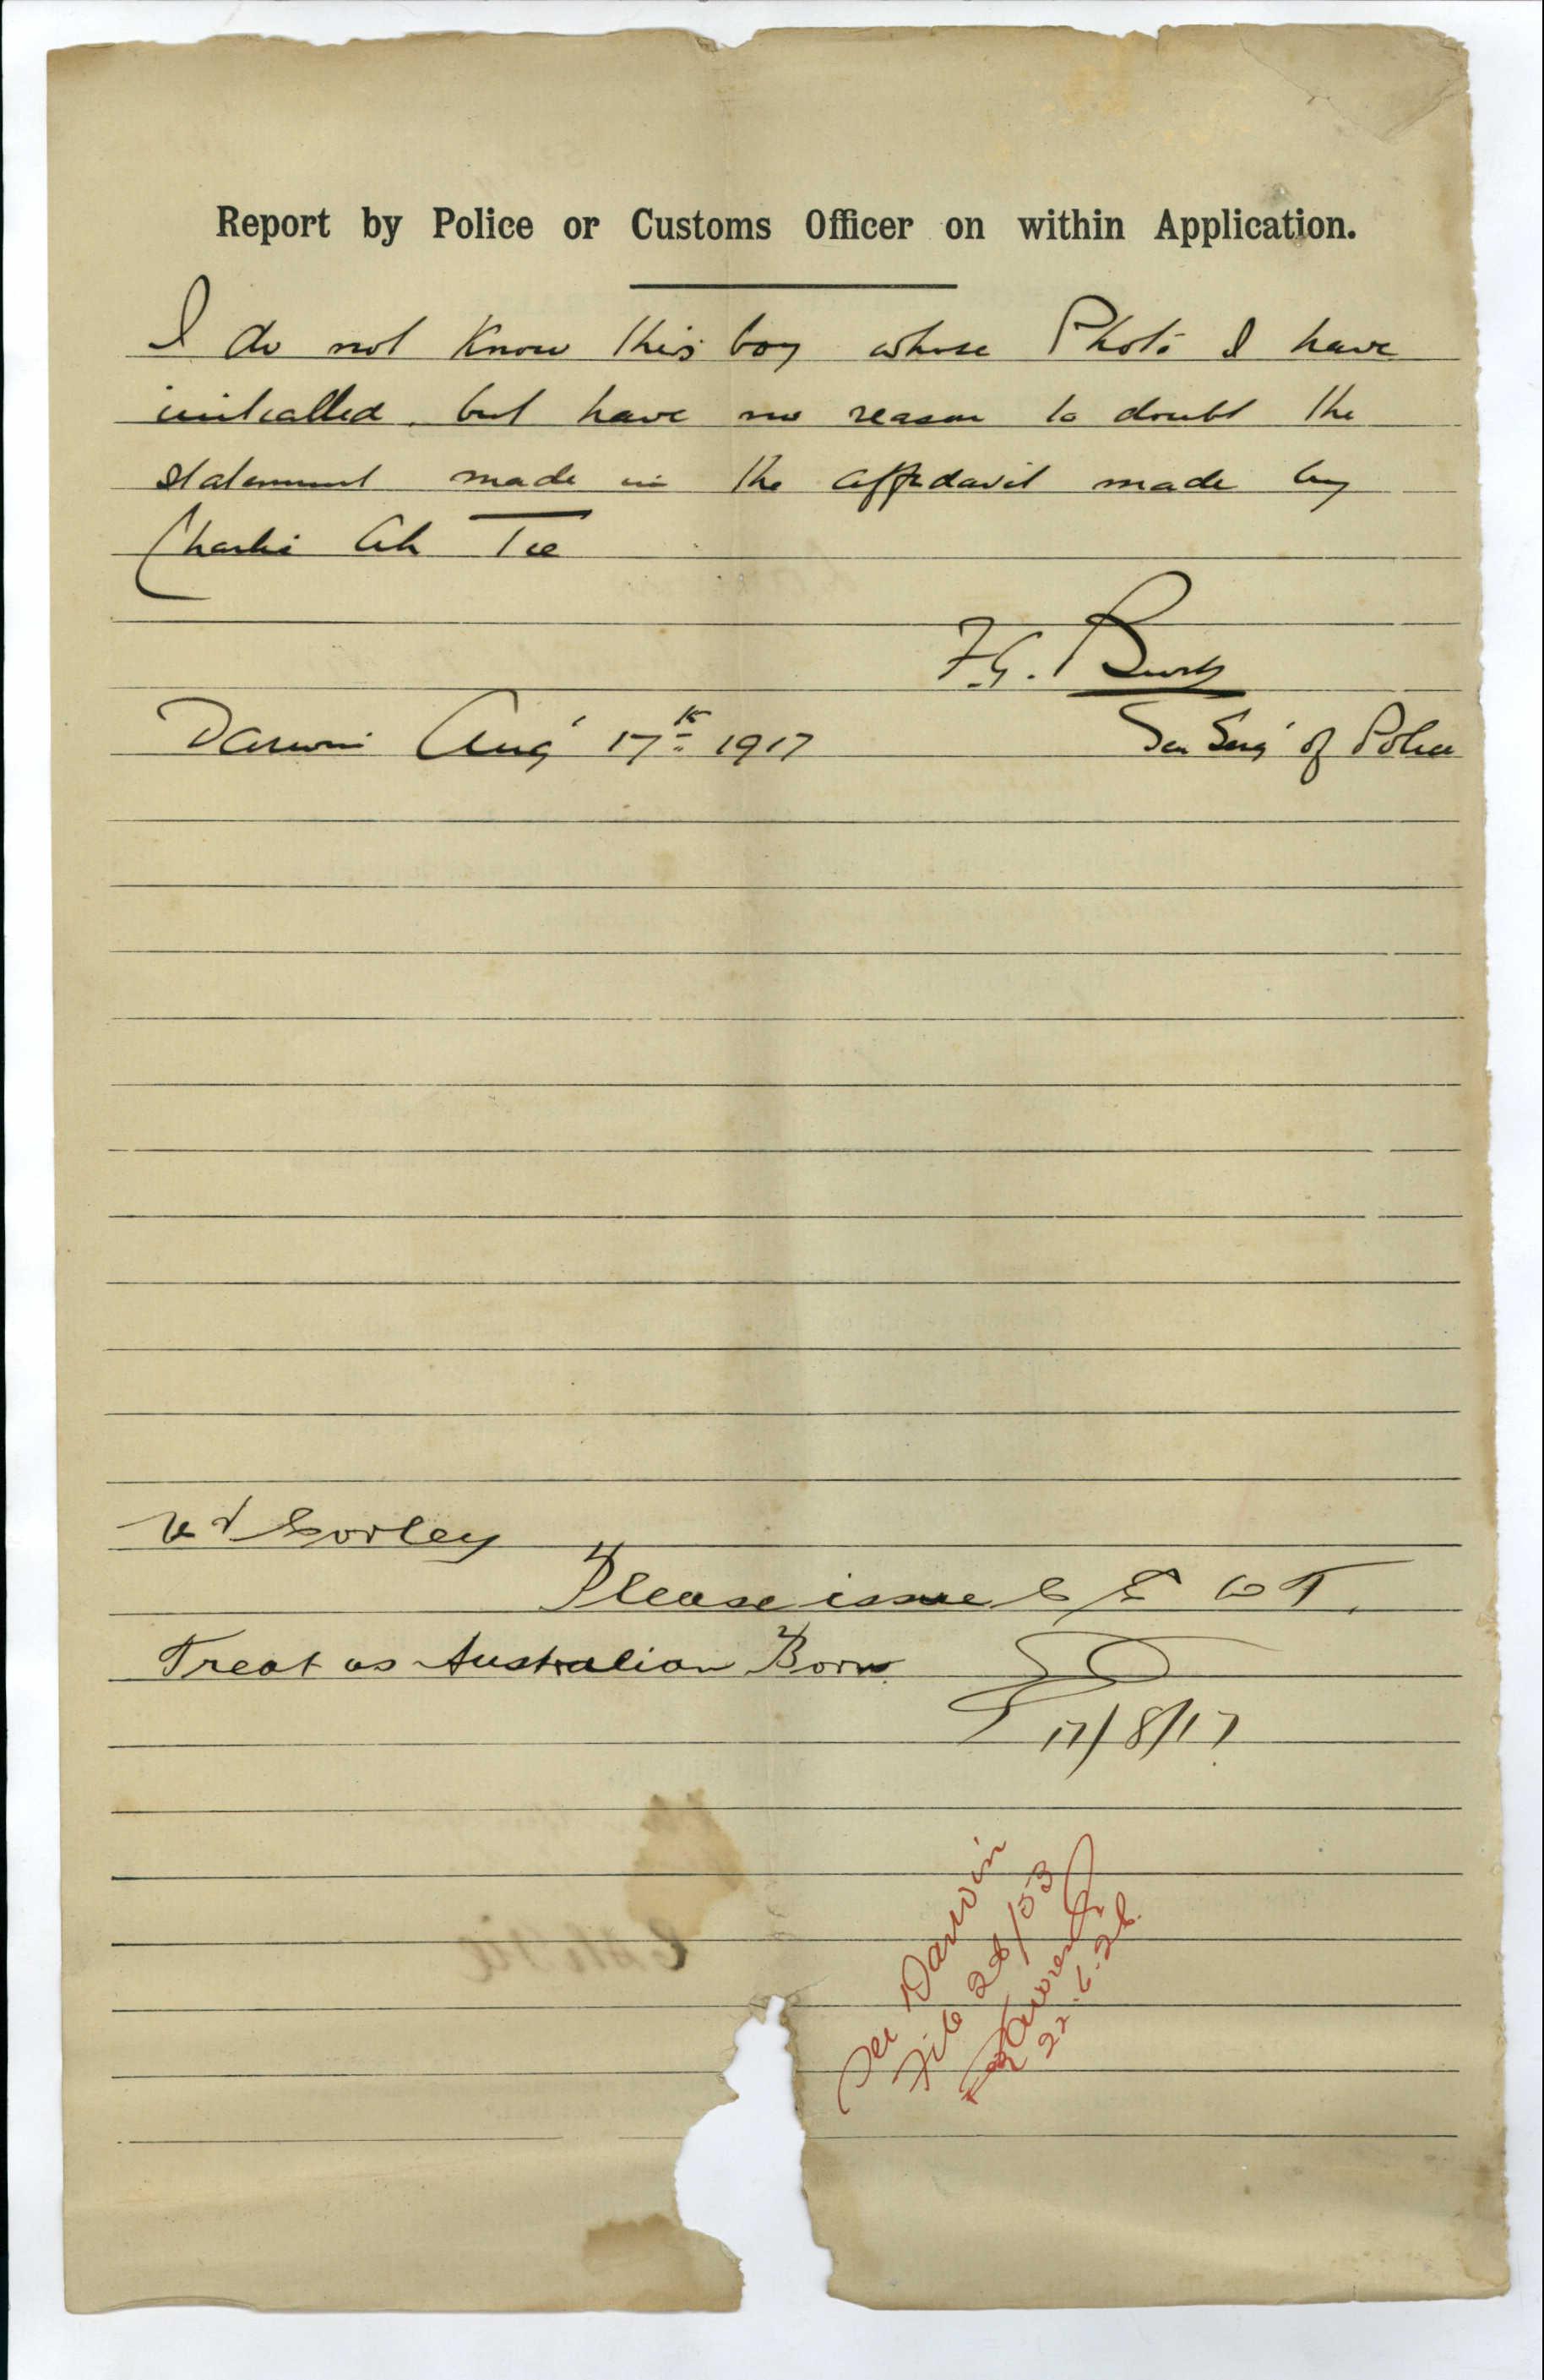 Report by Police or Customs Officer on within Application.
I do not know this boy whose Photo I have
initialled. but have no reason to doubt the
statement made in the affidavit made by
Charlie Ah Tie
F.G. Burt
Darwin Aug' 17th 1917
Sen Serg' of Police
Corley
Please issue C E D T.
Treat as Australian Born
17/8/17
See Darwin
File 28/53
22.6.28